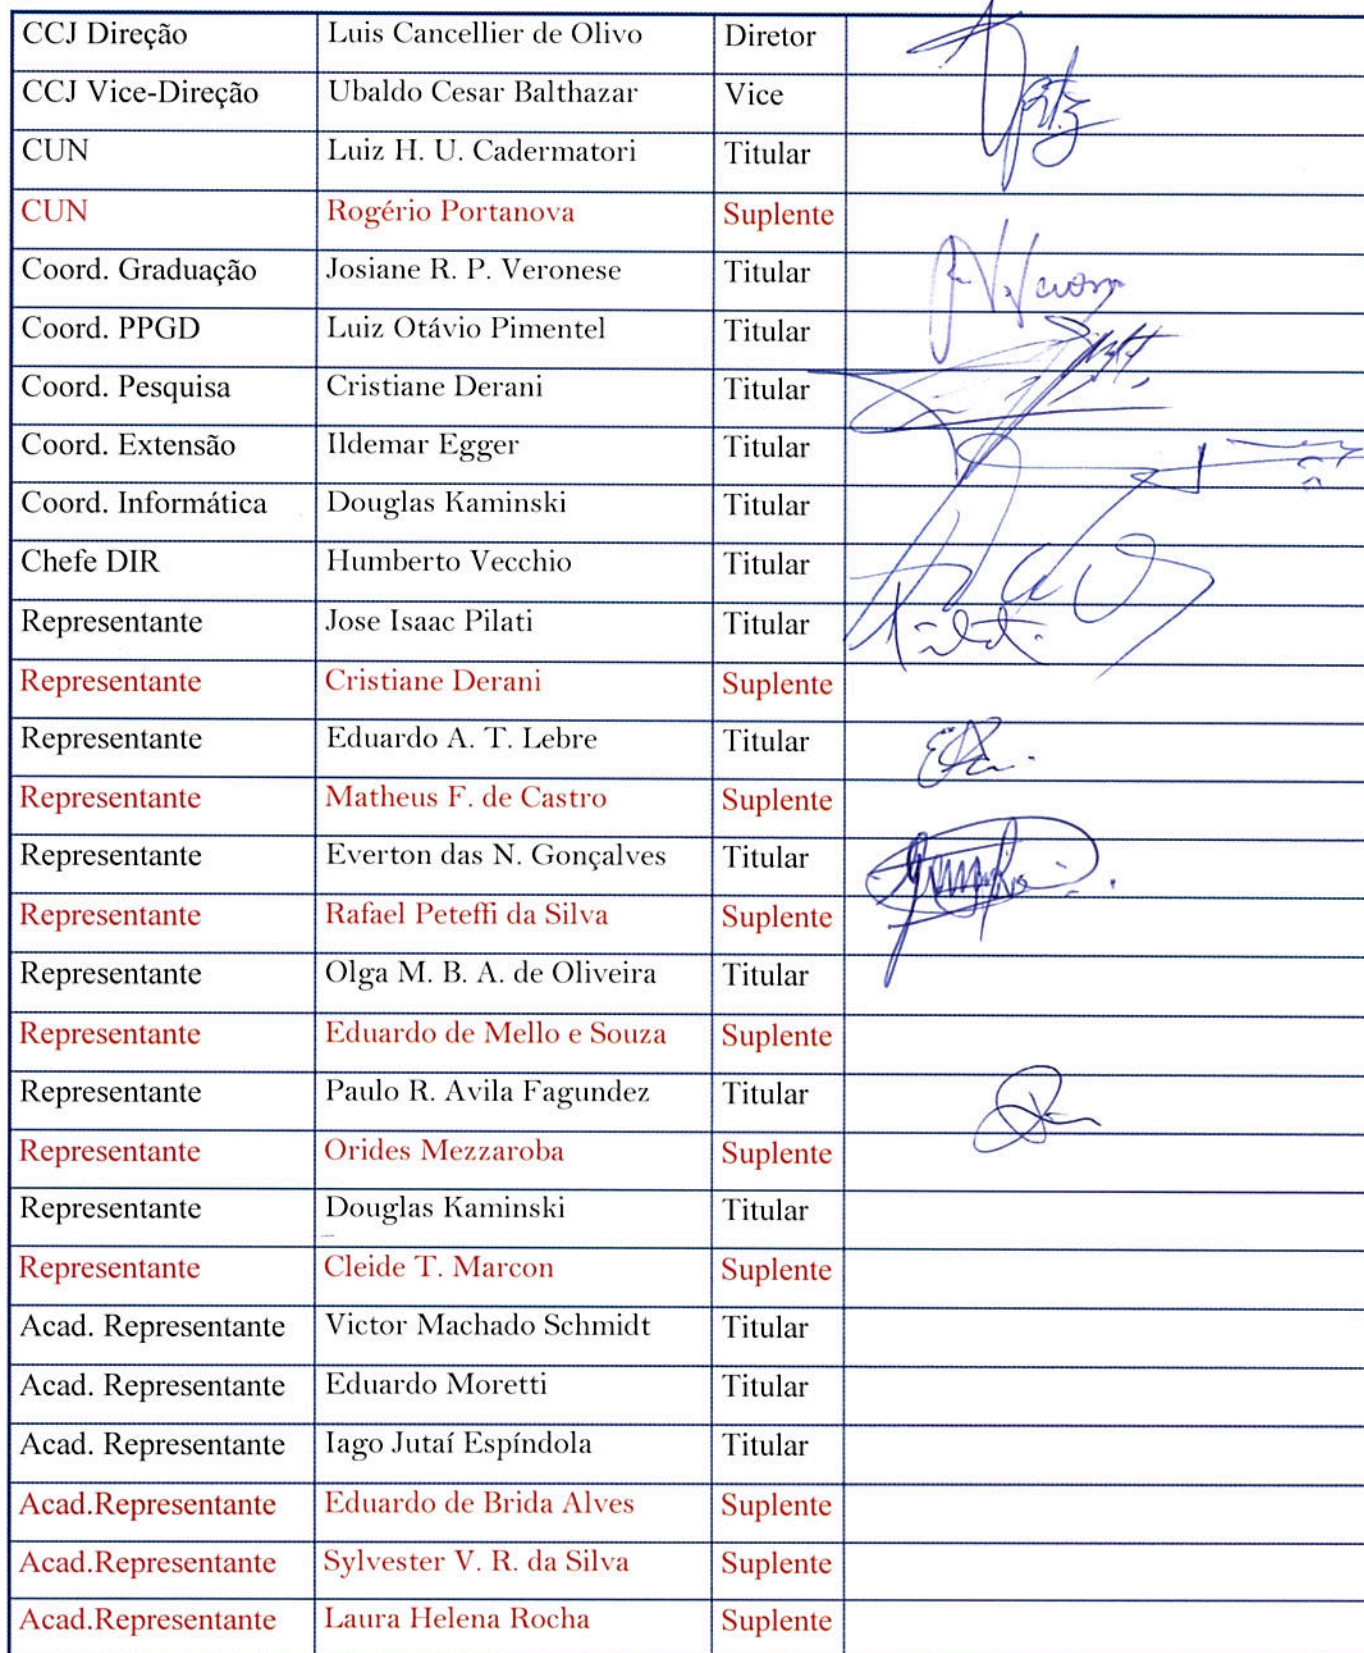 CCJ Direção Luis Cancellier de Olivo Diretor
CCJ Vice-Direção Ubaldo Cesar Balthazar Vice
CUN Luiz H. U. Cadermatori Titular
CUN Rogério Portanova Suplente
Coord. Graduação Josiane R. P. Veronese Titular
Coord. PPGD Luiz Otávio Pimentel Titular
Coord. Pesquisa Cristiane Derani Titular
Coord. Extensão Ildemar Egger Titular
Coord. Informática Douglas Kaminski Titular
Chefe DIR Humberto Vecchio Titular
Representante Jose Isaac Pilati Titular
Representante Cristiane Derani Suplente
Representante Eduardo A. T. Lebre Titular
Representante Matheus F. de Castro Suplente
Representante Everton das N. Gonçalves Titular
Representante Rafael Peteffi da Silva Suplente
Representante Olga M. B. A. de Oliveira Titular
Representante Eduardo de Mello e Souza Suplente
Representante Paulo R. Avila Fagundez Titular
Representante Orides Mezzaroba Suplente
Representante Douglas Kaminski Titular
Representante Cleide T. Marcon Suplente
Acad. Representante Victor Machado Schmidt Titular
Acad. Representante Eduardo Moretti Titular
Acad. Representante Iago Jutaí Espíndola Titular
Acad.Representante Eduardo de Brida Alves Suplente
Acad.Representante Sylvester V. R. da Silva Suplente
Acad.Representante Laura Helena Rocha Suplente